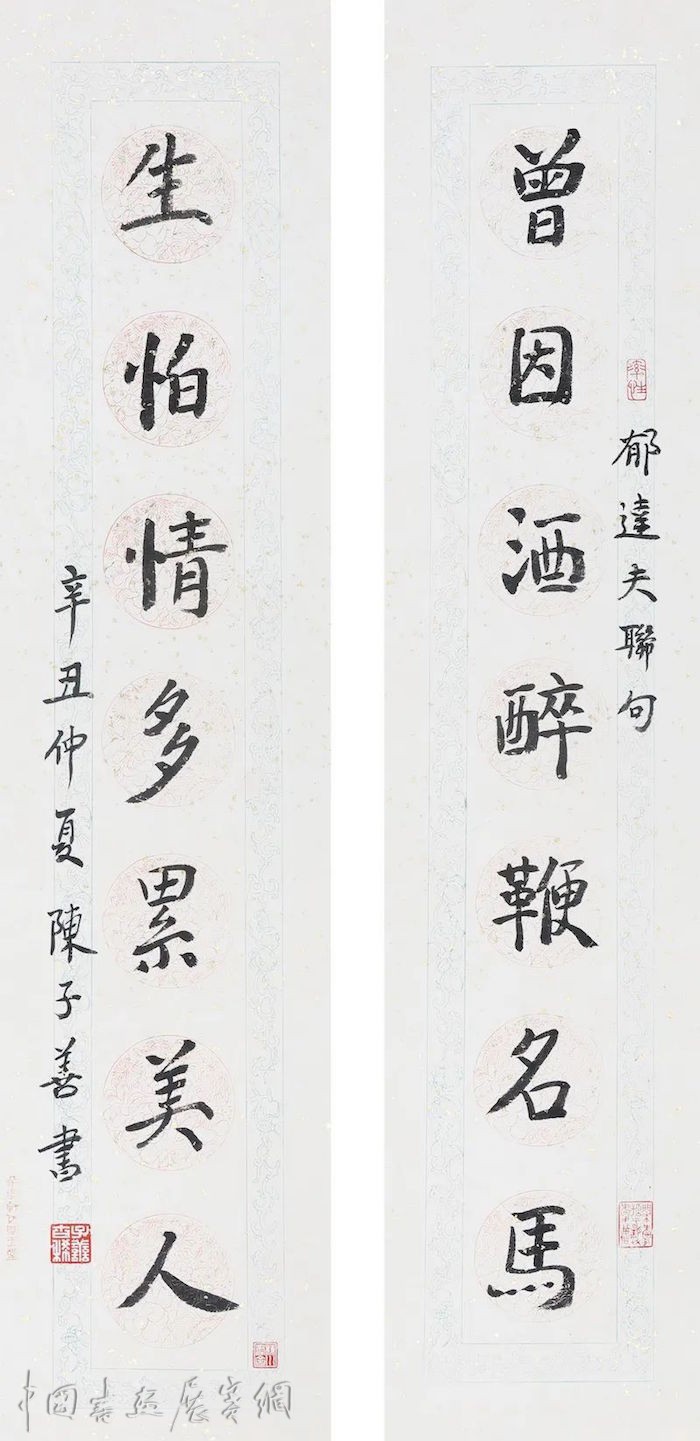 曾因酒醉鞭名馬
郁達夫聯句
率性
生怕情多累美人
辛丑仲夏陳子善書
中國書畫展賽網